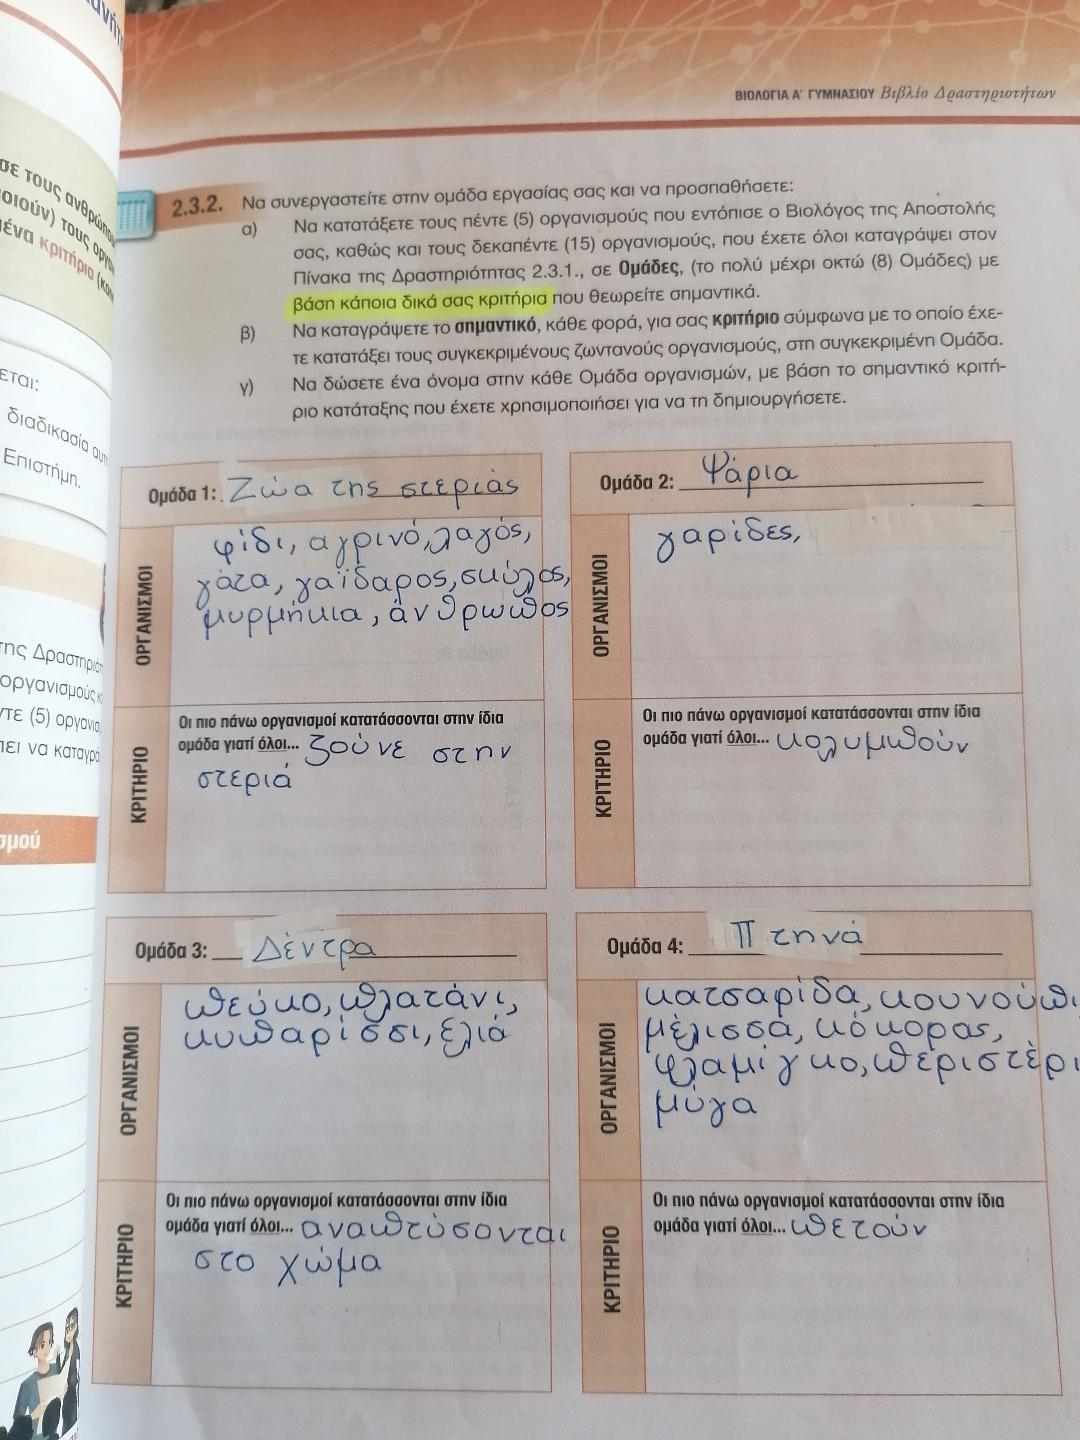 ΒΙΟΛΟΓΙΑ Α' ΓΥΜΝΑΣΙΟΥ Βιβλίο Δραστηριοτήτων
σε τους ανθρώπου
ποιούν) τους οργ
κριτήρια
εται:
διαδικασία αυτ
Επιστήμη.
της Δραστηριότ
οργανισμούς κ
ντε (5) οργανισ
πει να καταγρά
σμού
2.3.2. Να συνεργαστείτε στην ομάδα εργασίας σας και να προσπαθήσετε:
α) Να κατατάξετε τους πέντε (5) οργανισμούς που εντόπισε ο Βιολόγος της Αποστολής
σας, καθώς και τους δεκαπέντε (15) οργανισμούς, που έχετε όλοι καταγράψει στον
Πίνακα της Δραστηριότητας 2.3.1., σε Ομάδες, (το πολύ μέχρι οκτώ (8) Ομάδες) με
βάση κάποια δικά σας κριτήρια που θεωρείτε σημαντικά.
β) Να καταγράψετε το σημαντικό, κάθε φορά, για σας κριτήριο σύμφωνα με το οποίο έχε-
τε κατατάξει τους συγκεκριμένους ζωντανούς οργανισμούς, στη συγκεκριμένη Ομάδα.
γ) Να δώσετε ένα όνομα στην κάθε Ομάδα οργανισμών, με βάση το σημαντικό κριτή-
ριο κατάταξης που έχετε χρησιμοποιήσει για να τη δημιουργήσετε.
Ομάδα 1: Ζώα της στεριάς
ΟΡΓΑΝΙΣΜΟΙ
φίδι, αγρινό, λαγός,
γάτα, γαϊδαρος, σκύλος,
μυρμήκια, άνθρωπος
ΚΡΙΤΗΡΙΟ
Οι πιο πάνω οργανισμοί κατατάσσονται στην ίδια
ομάδα γιατί όλοι... ζούνε στην
στεριά
Ομάδα 2: Ψάρια
ΟΡΓΑΝΙΣΜΟΙ
γαρίδες,
ΚΡΙΤΗΡΙΟ
Οι πιο πάνω οργανισμοί κατατάσσονται στην ίδια
ομάδα γιατί όλοι... κολυμπούν
Ομάδα 3: Δέντρα
ΟΡΓΑΝΙΣΜΟΙ
πεύκο, πλατάνι,
κυπαρίσσι, ελιά
ΚΡΙΤΗΡΙΟ
Οι πιο πάνω οργανισμοί κατατάσσονται στην ίδια
ομάδα γιατί όλοι... αναπτύσονται
στο χώμα
Ομάδα 4: Πτηνά
ΟΡΓΑΝΙΣΜΟΙ
κατσαρίδα, κουνούπι,
μέλισσά, κόκορας,
φλαμίγκο, περιστέρι
μύγα
ΚΡΙΤΗΡΙΟ
Οι πιο πάνω οργανισμοί κατατάσσονται στην ίδια
ομάδα γιατί όλοι... πετούν